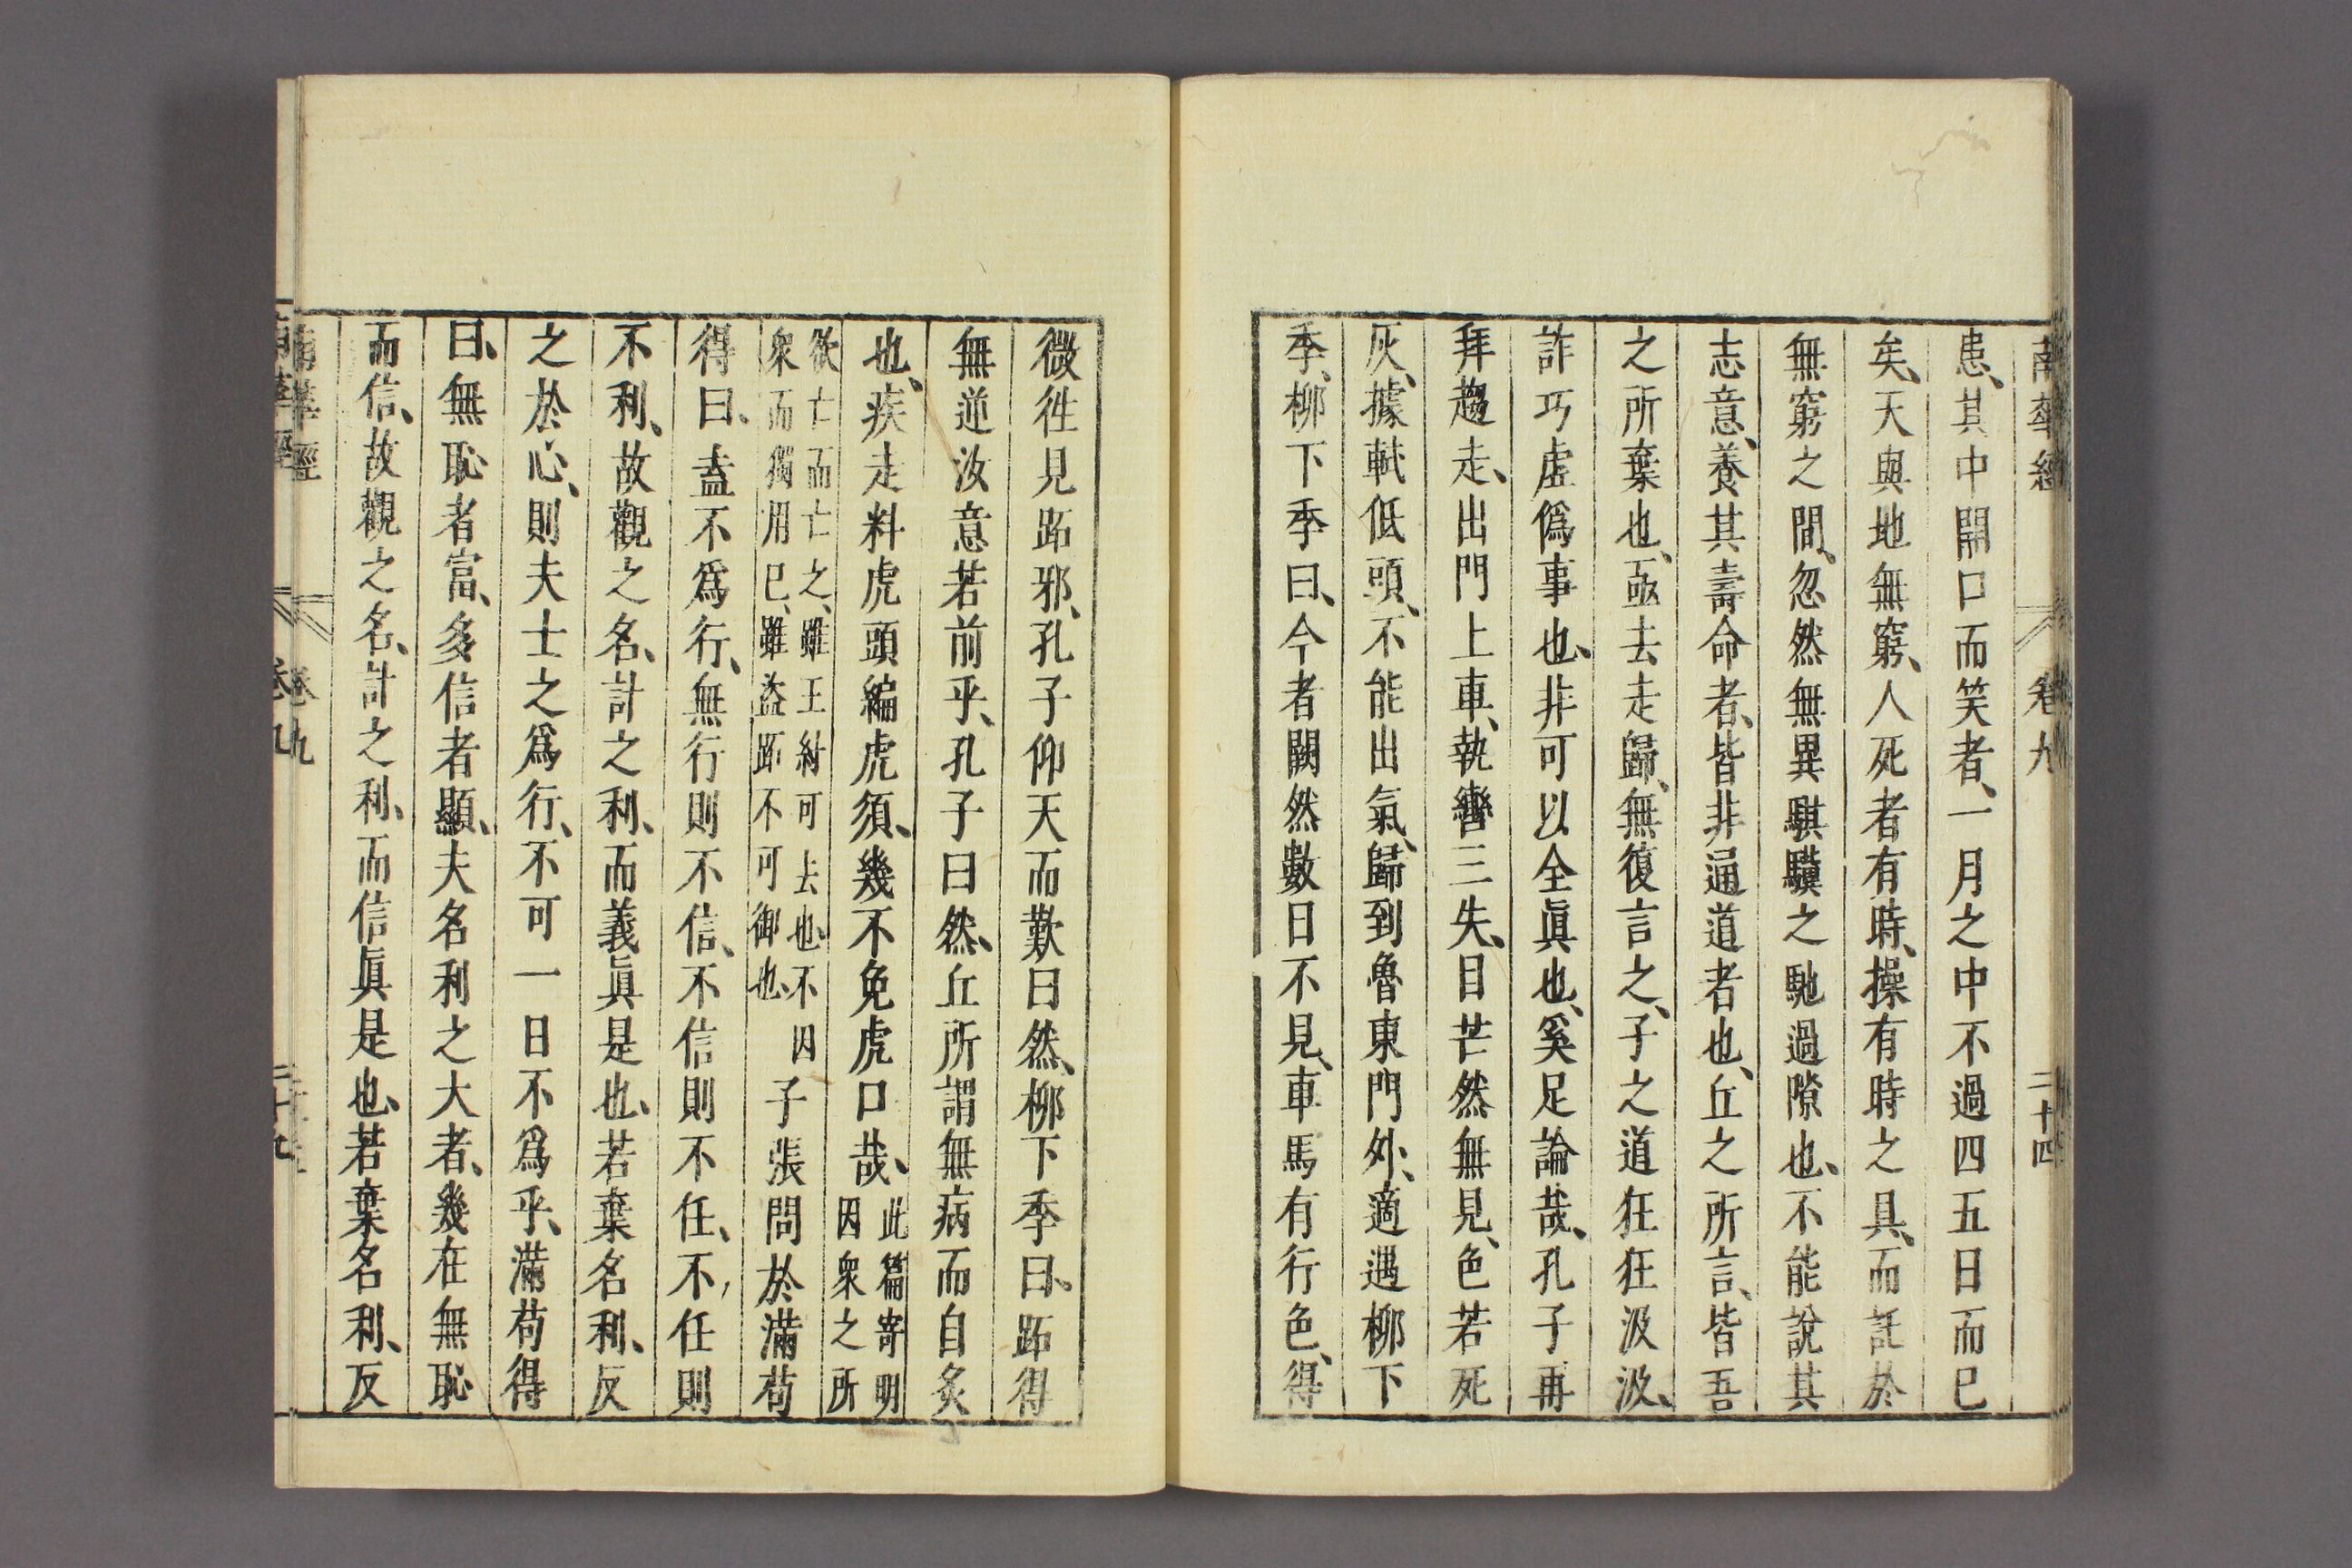 南華經 卷九 二十四
患、其中開口而笑者、一月之中不過四五日而已
矣、天與地無窮、人死者有時、操有時之具、而託於
無窮之間、忽然無異騏驥之馳過隙也、不能說其
志意、養其壽命者、皆非通道者也、丘之所言、皆吾
之所棄也、亟去走歸、無復言之、子之道狂狂汲汲、
詐巧虛僞事也、非可以全眞也、奚足論哉、孔子再
拜趨走、出門上車、執轡三失、目芒然無見、色若死
灰、據軾低頭、不能出氣、歸到魯東門外、適遇柳下
季、柳下季曰、今者闕然數日不見、車馬有行色、得
微徃見跖邪、孔子仰天而歎曰然、柳下季曰、跖得
無逆汝意若前乎、孔子曰然、丘所謂無病而自炙
也、疾走料虎頭編虎須、幾不免虎口哉、此篇寄明因衆之所
欲亡而亡之、雖王紂可去也、不因衆而獨用已、雖盜跖不可御也、子張問於滿苟
得曰、盍不爲行、無行則不信、不信則不任、不任則
不利、故觀之名、計之利、而義眞是也、若棄名利、反
之於心、則夫士之爲行、不可一日不爲乎、滿苟得
曰、無恥者富、多信者顯、夫名利之大者、幾在無恥
而信、故觀之名、計之利、而信眞是也、若棄名利、反
南華經 卷九